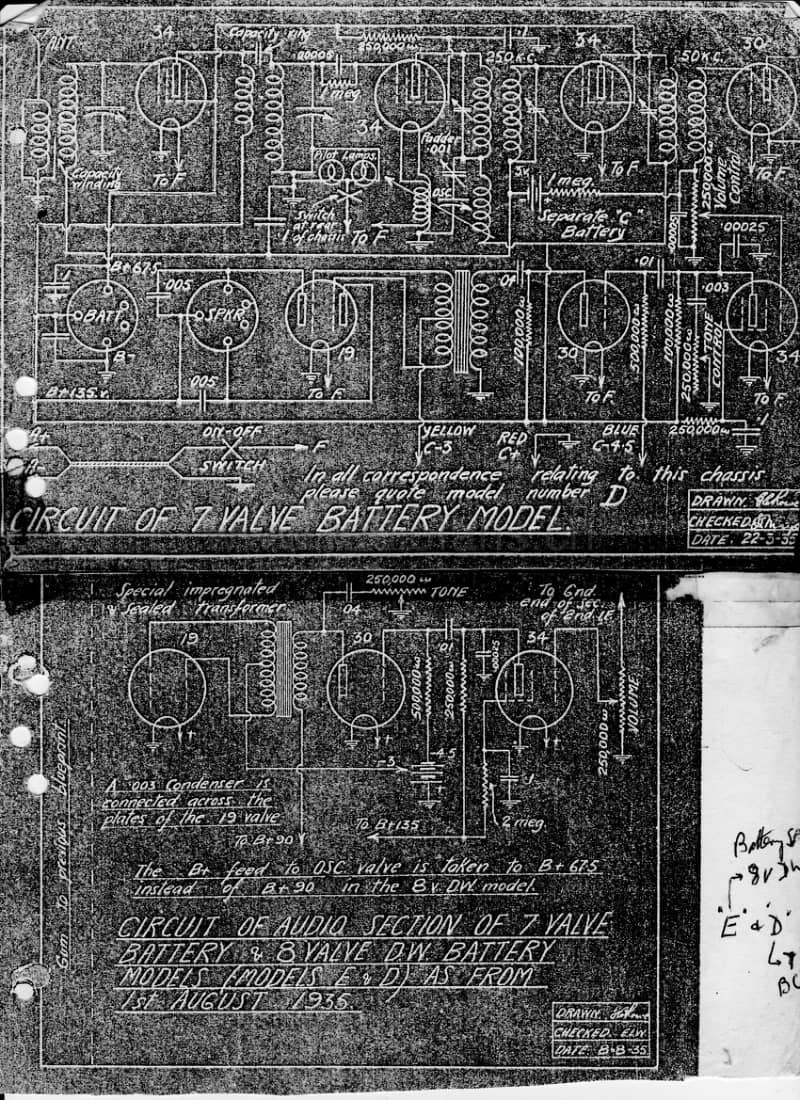 ANT.
34
Capacity ring
250,000 ω
.1
.00005
1 meg.
34
250 K.C.
34
50 K.C.
30
Capacity winding
To F
Pilot Lamps.
Switch
at rear
of chassis
To F
Padder
.001
OSC
1 meg.
Separate "C"
Battery
To F
.00025
250,000 ω
Volume
Control
To F
.00025
B+67.5
.1
BATT
B-
B+135 v.
.005
SPKR
.005
19
To F
.04
100,000 ω
30
To F
.01
500,000 ω
100,000 ω
.003
250,000 ω
TONE
CONTROL
34
To F
250,000 ω
.1
A+
A-
ON-OFF
SWITCH
F
YELLOW
C-3
RED
C+
BLUE
C-4.5
In all correspondence relating to this chassis
please quote model number D
CIRCUIT OF 7 VALVE BATTERY MODEL.
DRAWN.
CHECKED.
DATE. 22-3-35
Special impregnated
& Sealed Transformer
250,000 ω
TONE
.04
To Gnd
end of sec.
of 2nd I.F.
19
30
34
500,000 ω
.01
250,000 ω
.00025
250,000 ω
VOLUME
-4.5
-3
.1
2 meg.
A .003 Condenser is
connected across the
plates of the 19 valve
To B+90
To B+135
The B+ feed to OSC valve is taken to B+67.5
instead of B+90 in the 8 v D.W. model.
CIRCUIT OF AUDIO SECTION OF 7 VALVE
BATTERY & 8 VALVE D.W. BATTERY
MODELS (MODELS E & D) AS FROM
1st AUGUST 1935.
DRAWN.
CHECKED. ELW
DATE. 8-8-35
Gum to previous blueprint
Battery
8 v DW
"E" & "D"